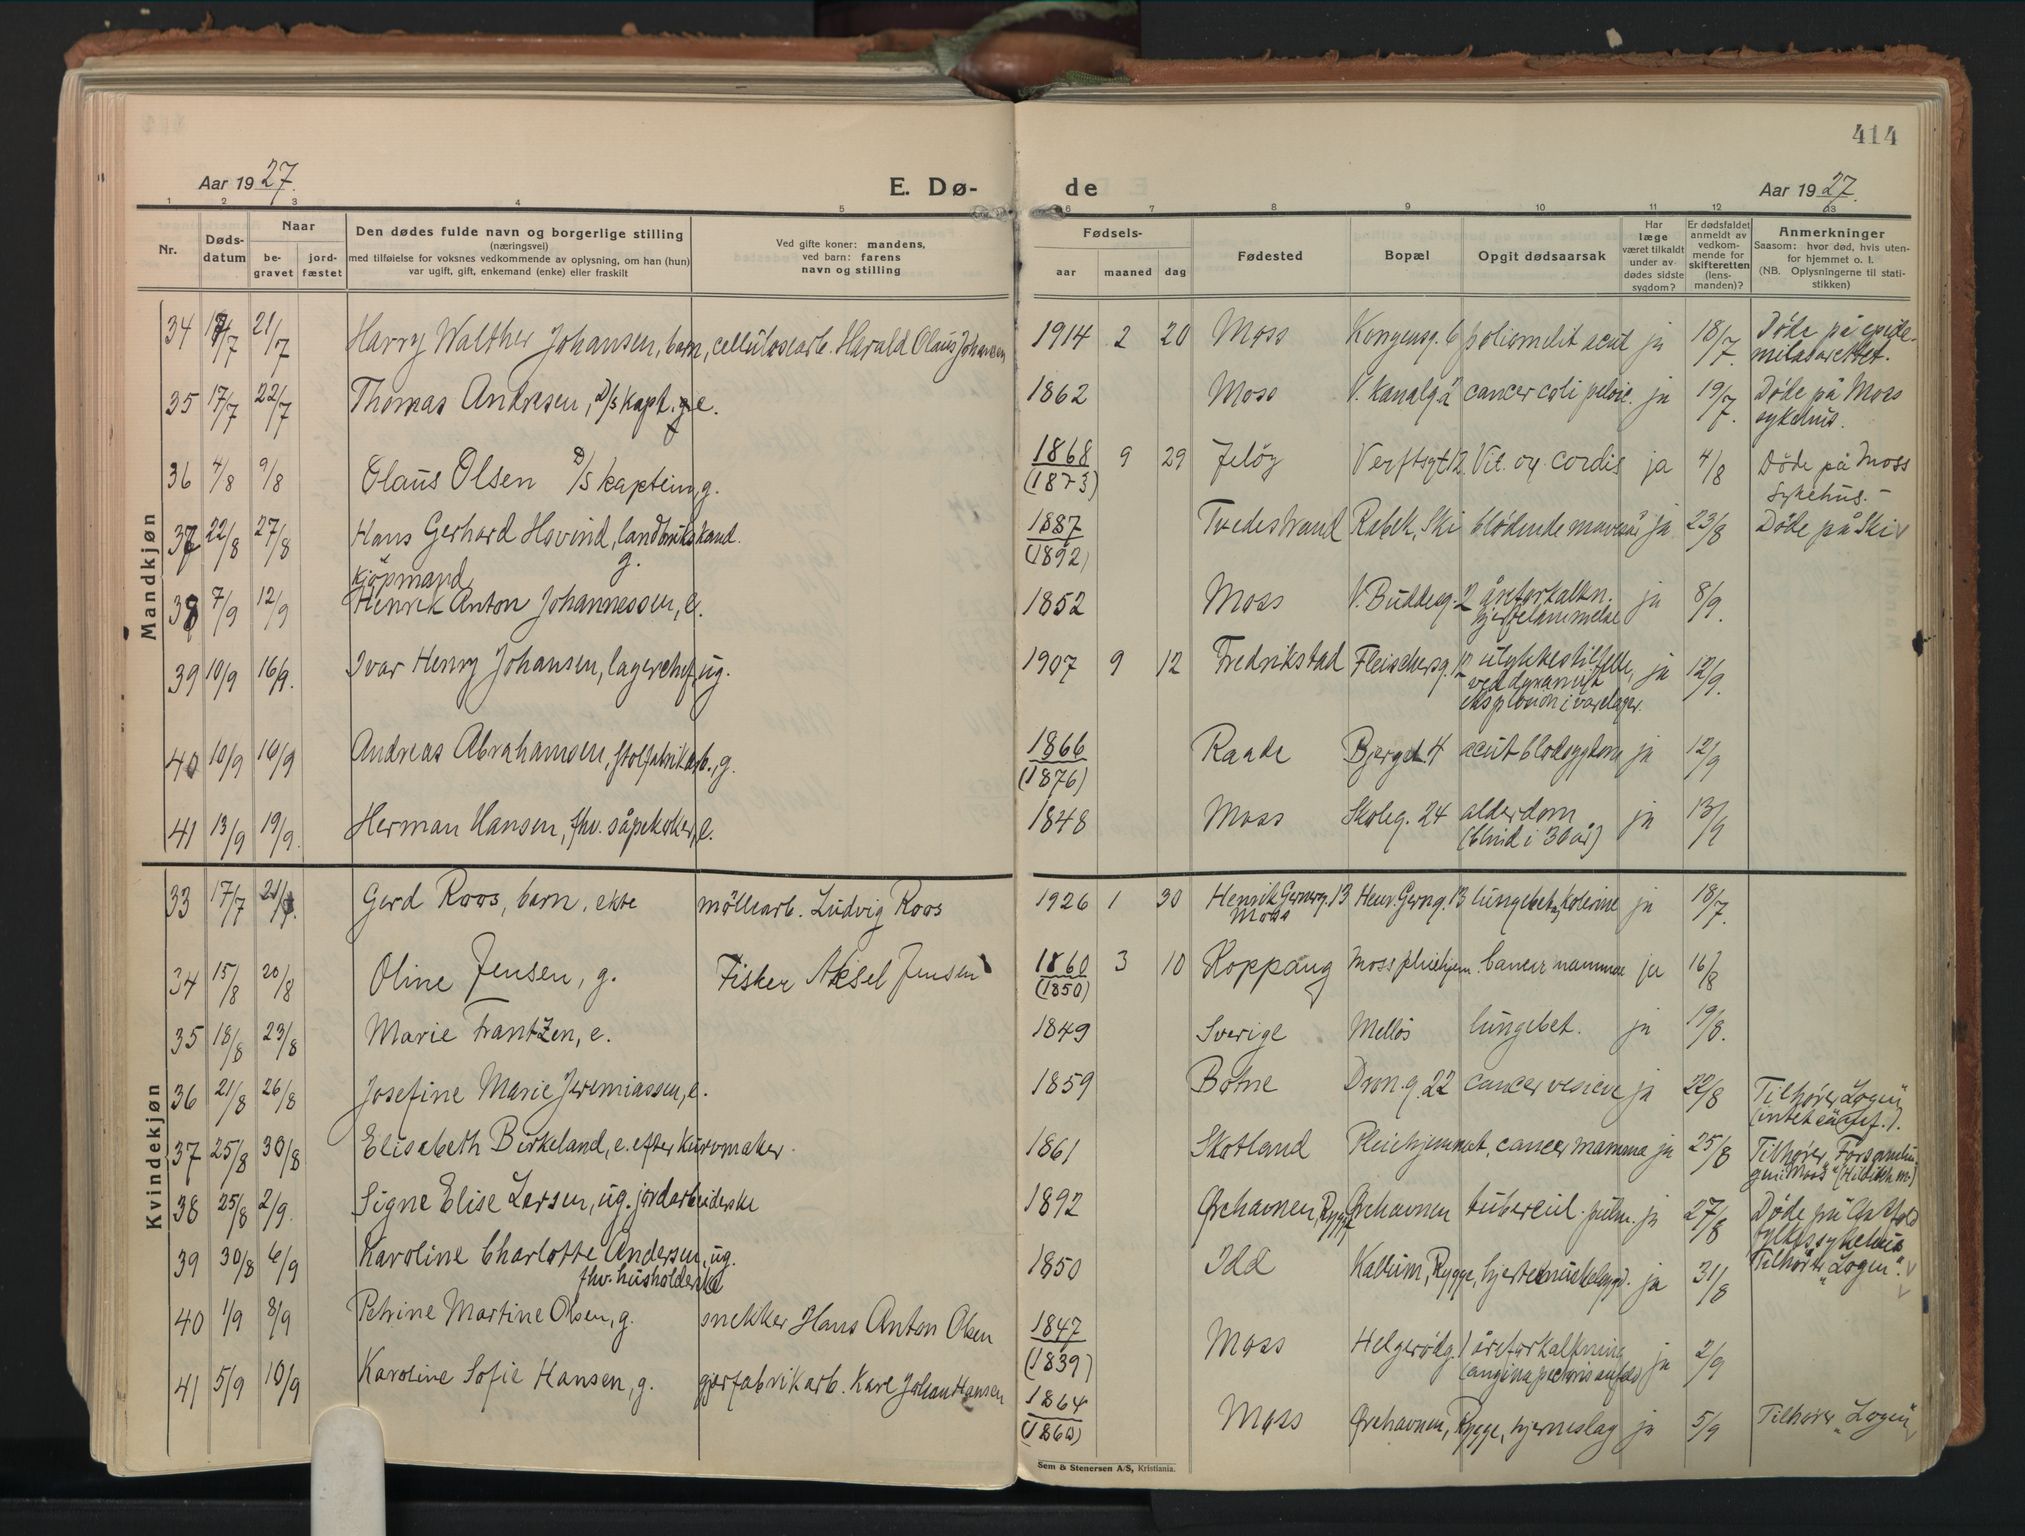 414
Aar 1927.
E. Dø-
de
Aar 1927.
1 2 3 4 5 6 7 8 9 10 11 12 13
Nr.
Døds-
datum
Naar
be-
gravet
jord-
fæstet
Den dødes fulde navn og borgerlige stilling
(næringsvei)
med tilføielse for voksnes vedkommende av oplysning, om han (hun)
var ugift, gift, enkemand (enke) eller fraskilt
Ved gifte koner: mandens,
ved barn: farens
navn og stilling
Fødsels-
aar maaned dag
Fødested
Bopæl
Opgit dødsaarsak
Har
læge
været tilkaldt
under av
dødes sidste
sygdom?
Er dødsfaldet
anmeldt av
vedkom-
mende for
skifteretten
(lens-
manden)?
Anmerkninger
Saasom: hvor død, hvis uten-
for hjemmet o. l.
(NB. Oplysningerne til stati-
stikken)
Mandkjøn
34 17/7 21/7 Harry Walther Johansen, barn, cellulosearb. Harald Olaus Johansen 1914 2 20 Moss Kongensg. 6 poliomelit acut ja 18/7 Døde på epide-
milasarettet.
35 17/7 22/7 Thomas Andresen, D/s kapt. e. 1862 Moss V. Kanalg. 2 cancer coli pelvic. ja 19/7. Døde på Moss
sykehus.
36 4/8 9/8 Olaus Olsen D/s kaptein, g. 1868 (1873) 9 29 Jeløy Verftsgt 12 Vit. og. cordis ja 4/8 Døde på Moss
Sykehus. -
37 22/8 27/8 Hans Gerhard Hovind, landbrukskand. g. 1887 (1892) Tvedestrand Ski blødende mavesår ja 23/8 Døde på Ski
Kjøpmand
38 7/9 12/9 Henrik Anton Johannessen, e. 1852 Moss V. Buddesg. 2 åreforkalkn. ja 8/9.
hjertelammelse
39 10/9 16/9. Ivar Henry Johansen, lagerchef, ug. 1907 9 12 Fredrikstad Fleischersg. 12 ulykkestilfelle, ja 12/9.
ved dynamit
eksplosion i varelager.
40 10/9 16/9 Andreas Abrahamsen, stolfabrikarb., g. 1866 (1876) Raade Bjerget 4 acut blodsygdom ja 12/9
41 13/9 19/9. Herman Hansen, fhv. såpekoker, e. 1848 Moss Skoleg. 24 alderdom ja 13/9
(blind i 30 år)
Kvindekjøn
33 17/7 21/7. Gerd Roos, barn, ekte møllearb. Ludvig Roos 1926 1 30 Henrik Gernerg. 13 Henr. Gerng. 13 lungebet. kolerine ja 18/7.
Moss
34 15/8 20/8 Oline Jensen, g. Fisker Aksel Jensen 1860 (1850) 3 10 Koppang Moss pleiehjem. Cancer mammae ja 16/8
35 18/8 23/8 Marie Frantzen, e. 1849 Sverige Melløs lungebet. ja 19/8.
36 21/8 26/8 Josefine Marie Jeremiassen, e. 1859 Botne Dron.g. 22 cancer vesicae ja 22/8 Tilhører "Logen"
37 25/8 30/8 Elisabeth Birkeland, e. efter kurvmaker. 1861 Skotland Pleiehjemmet, cancer mammae ja 25/8 Tilhører "Forsamlin-
gen i Moss"
38 25/8 2/9. Signe Elise Larsen, ug. jordarbeiderske 1892 Ørehavnen, Rygge Ørehavnen tubercul. pulm. ja 27/8 Døde på Østfold
fylkessykehus
39 30/8 6/9 Karoline Charlotte Andersen, ug. 1850 Idd Kallum, Rygge, hjertemuskelsygd. ja 31/8 Tilhører "Logen".
fhv. husholderske
40 1/9 8/9 Petrine Martine Olsen, g. snekker Hans Anton Olsen 1847 (1839) Moss Helgerødg. 1 åreforkalkning ja 2/9
(angina pectoris anfald)
41 5/9 10/9 Karoline Sofie Hansen, g. gjærfabrikarb. Karl Johan Hansen 1864 (1860) Moss Ørehavnen, Rygge, hjerneslag ja 5/9 Tilhører "Logen"
Sem & Stenersen A/S, Kristiania.